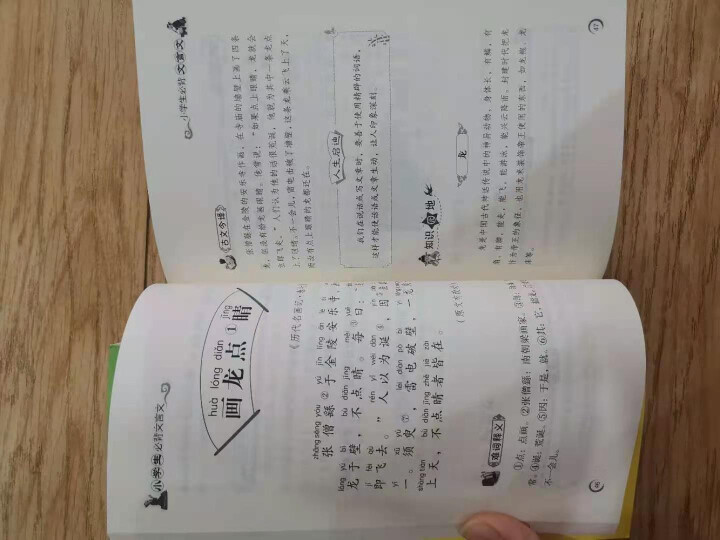 小学生必背文言文
huà lóng diǎn jīng
画龙点①睛
《历代名画记·
zhāng sēng yóu yú jīn líng ān lè sì
张僧繇②于金陵安乐寺
lóng yú bì bù diǎn jīng měi yuē
龙于壁，不点睛。每③曰：
jí fēi qù rén yǐ wéi dàn yīn
即飞去。”人以为诞④，因
yī xū yú léi diàn pò bì yì
一。须臾⑦，雷电破壁，一
shàng tiān bù diǎn jīng zhě jiē zài
上天，不点睛者皆在。
（原文有
难词释义
①点：点画。②张僧繇：南朝梁画家。③每：
常。④诞：荒诞。⑤因：于是，就。⑥其：它，
不一会儿。
46
小学生必背文言文
古文今译
张僧繇在金陵的安乐寺作画，在寺庙的墙壁上画了四条
龙，但没有给龙画眼睛。他常说：“如果点上眼睛，龙就会
立即飞走。”人们认为他的话很荒诞，他就为其中一条龙点
上了眼睛。不一会儿，雷电击破了墙壁，这条龙乘云飞上了天，
而没有点上眼睛的龙都还在。
人生启迪
我们在说话或写文章时，要善于使用精辟的词语，
这样才能使话语或文章生动，让人印象深刻。
知识园地
龙
龙是中国古代神话传说中的神异动物，身体长，有鳞，有
角，有脚，能走，能飞，能游泳，能兴云降雨。封建时代把龙
作为帝王的象征，也用来指帝王使用的东西，如龙袍、龙
床等。
47